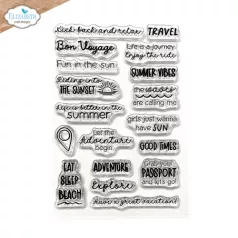 ELIZABETH
craft designs
kick back and relax
TRAVEL
Bon Voyage
Life is a journey
Enjoy the ride
Fun in the sun
Riding into
THE SUNSET
SUMMER VIBES
the waves
are calling me
Life is better in the
summer
girls just wanna
have SUN
Let the
Adventure
begin
GOOD TIMES
EAT
SLEEP
BEACH
ADVENTURE
Explore
Grab your
PASSPORT
and let's go!
Have a great vacation!